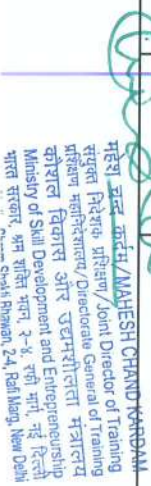 महेश चन्द कर्दम/MAHESH CHAND KARDAM
संयुक्त निदेशक प्रशिक्षण/Joint Director of Training
प्रशिक्षण महानिदेशालय/Directorate General of Training
कौशल विकास और उद्यमशीलता मंत्रालय
Ministry of Skill Development and Entrepreneurship
भारत सरकार श्रम शक्ति भवन, २-४, रफी मार्ग, नई दिल्ली
Shram Shakti Bhawan, 2-4, Rafi Marg, New Delhi